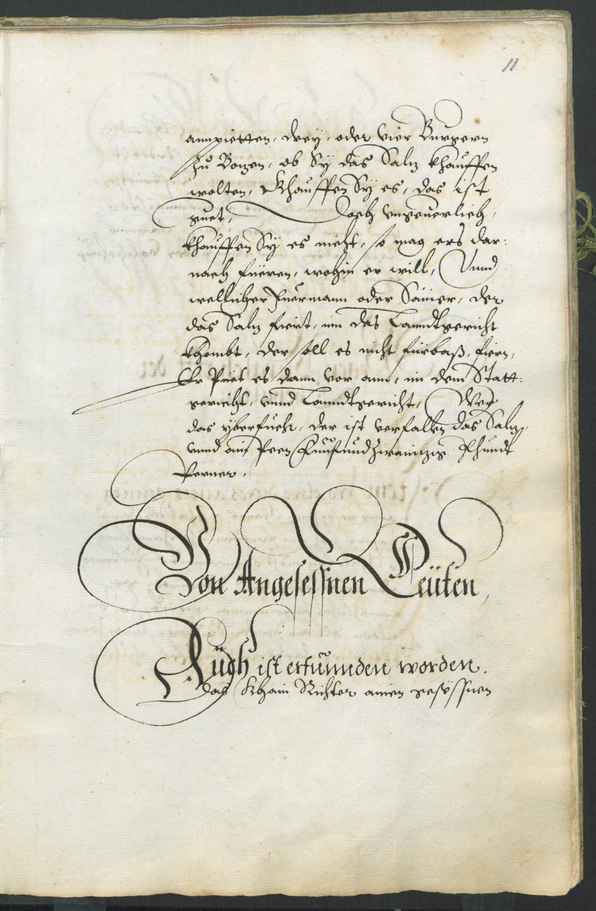 11
annpietten, drey, oder vier Burgern
zu Bozen, ob Sy das Salz khauffen
wolten, Khauffen Sy es, das ist
guet, Doch ungeuerlich,
khauffen Sy es nicht, so mag ers dar:
nach fueren, wohin er will, Unnd
wellicher Fuermann oder Sämer, der
das Salz fiert, inn das Lanndtgericht
khombt, der soll es nicht fürbaß, fiern,
Er Piet es dann vor ann, in dem Statt:
gericht, unnd Lanndtgericht, Wer
das yberfueh, der ist verfallen das Salz,
unnd ain Peen Funfundzwainzig Phundt
Perner.
Von Angesessnen Leüten,
Auch ist erfunnden worden.
das Khain Richter ainen gesessnen